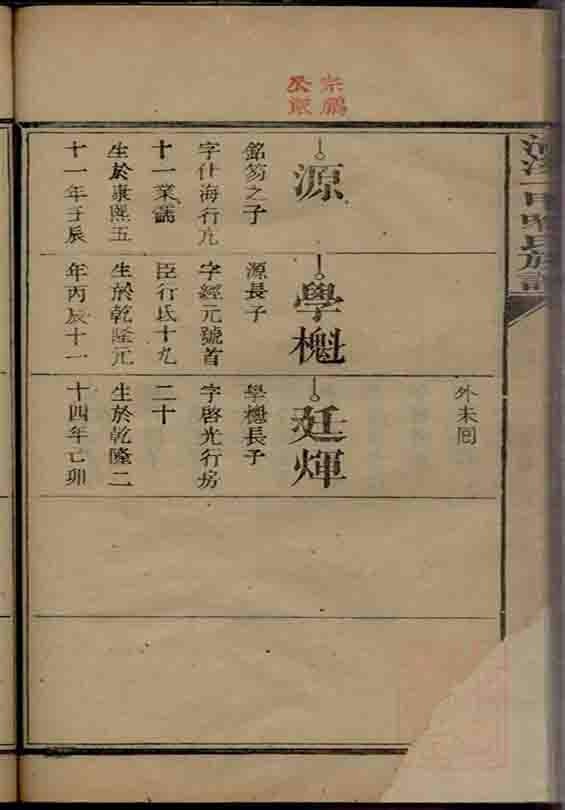 外未囘
源
銘笏之子
字仕海行九
十一業儒
生於康熙五
十一年壬辰
學櫆
源長子
字經元號首
臣行氐十九
生於乾隆元
年丙辰十一
廷煇
學櫆長子
字啓光行房
二十
生於乾隆二
十四年己卯